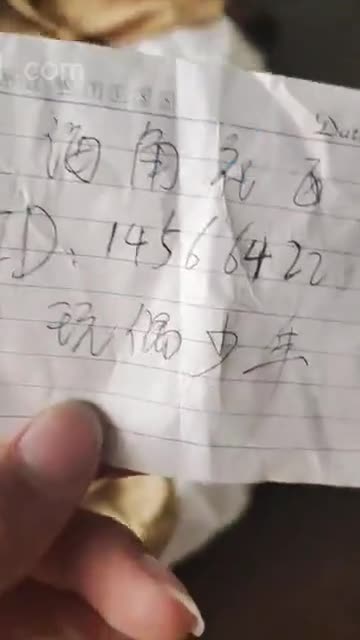 .com
Dat
海角社区
ID:14566422
玩偶少年